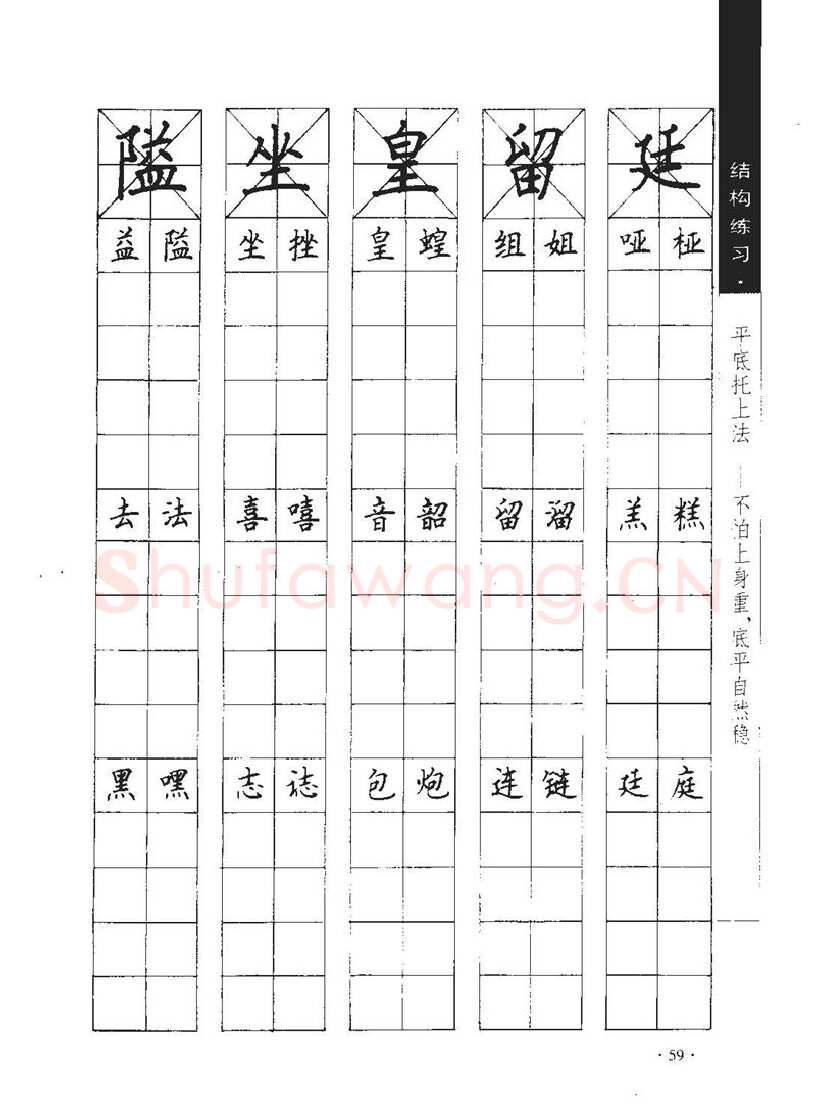 隘 坐 皇 留 廷
益 隘 坐 挫 皇 蝗 组 姐 哑 桠
去 法 喜 嘻 音 韶 留 溜 羔 糕
黑 嘿 志 誌 包 炮 连 链 廷 庭
结构练习·
平底托上法——不怕上身重,底平自然稳
Shufawang.CN
·59·